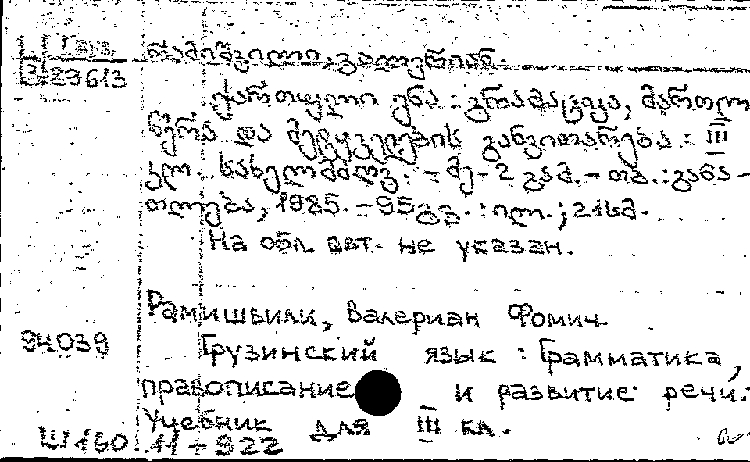 Груз.
3 29613
რამიშვილი, ვალერიან.
ქართული ენა : გრამატიკა, მართლ
წერა და მეტყველების განვითარება : III
კლ. სახელმძღვ. - მე-2 გამ. - თბ. : განა-
თლება, 1985. - 95 გვ. : ილ. ; 21 სმ.
На обл. авт. не указан.
Рамишвили, Валериан Фомич.
94039
Грузинский язык : Грамматика,
правописание и развитие речи.
Учебник для III кл.
Ш160.11-922